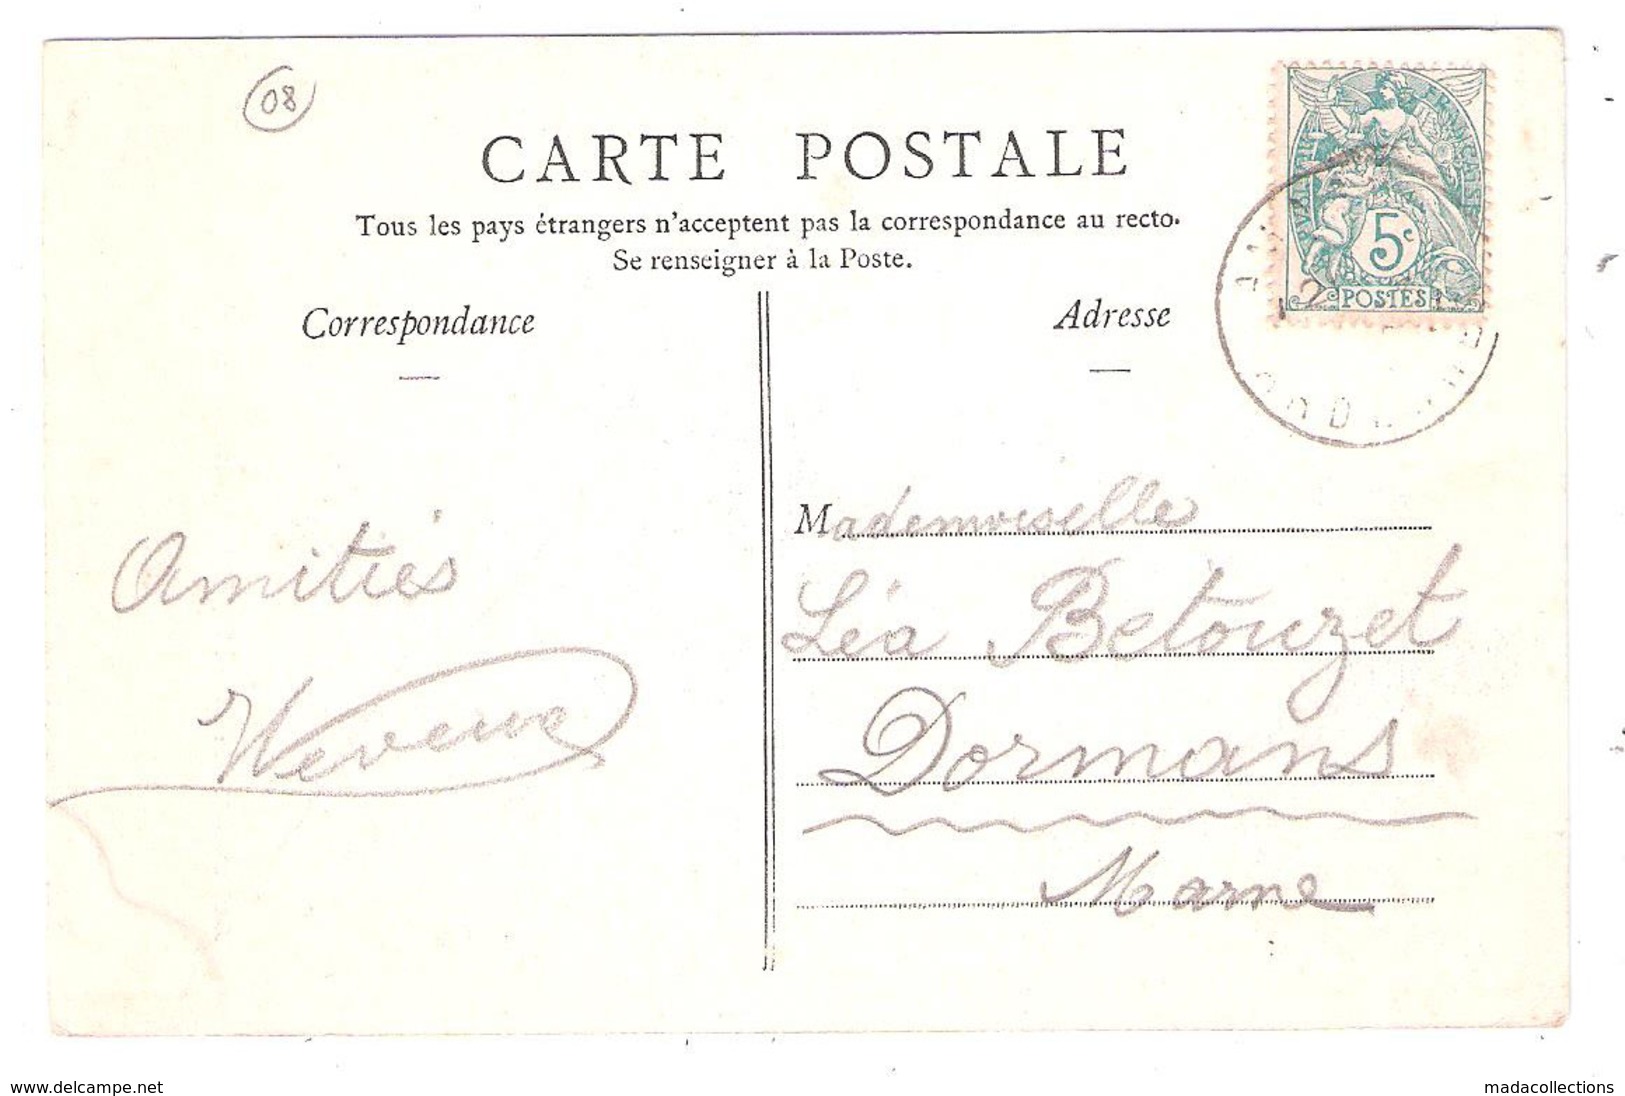 08
CARTE POSTALE
Tous les pays étrangers n'acceptent pas la correspondance au recto.
Se renseigner à la Poste.
Correspondance
Adresse
5c
POSTES
Amitiés
Mademoiselle
Léa Betouzet
Dormans
Marne
www.delcampe.net
madacollections